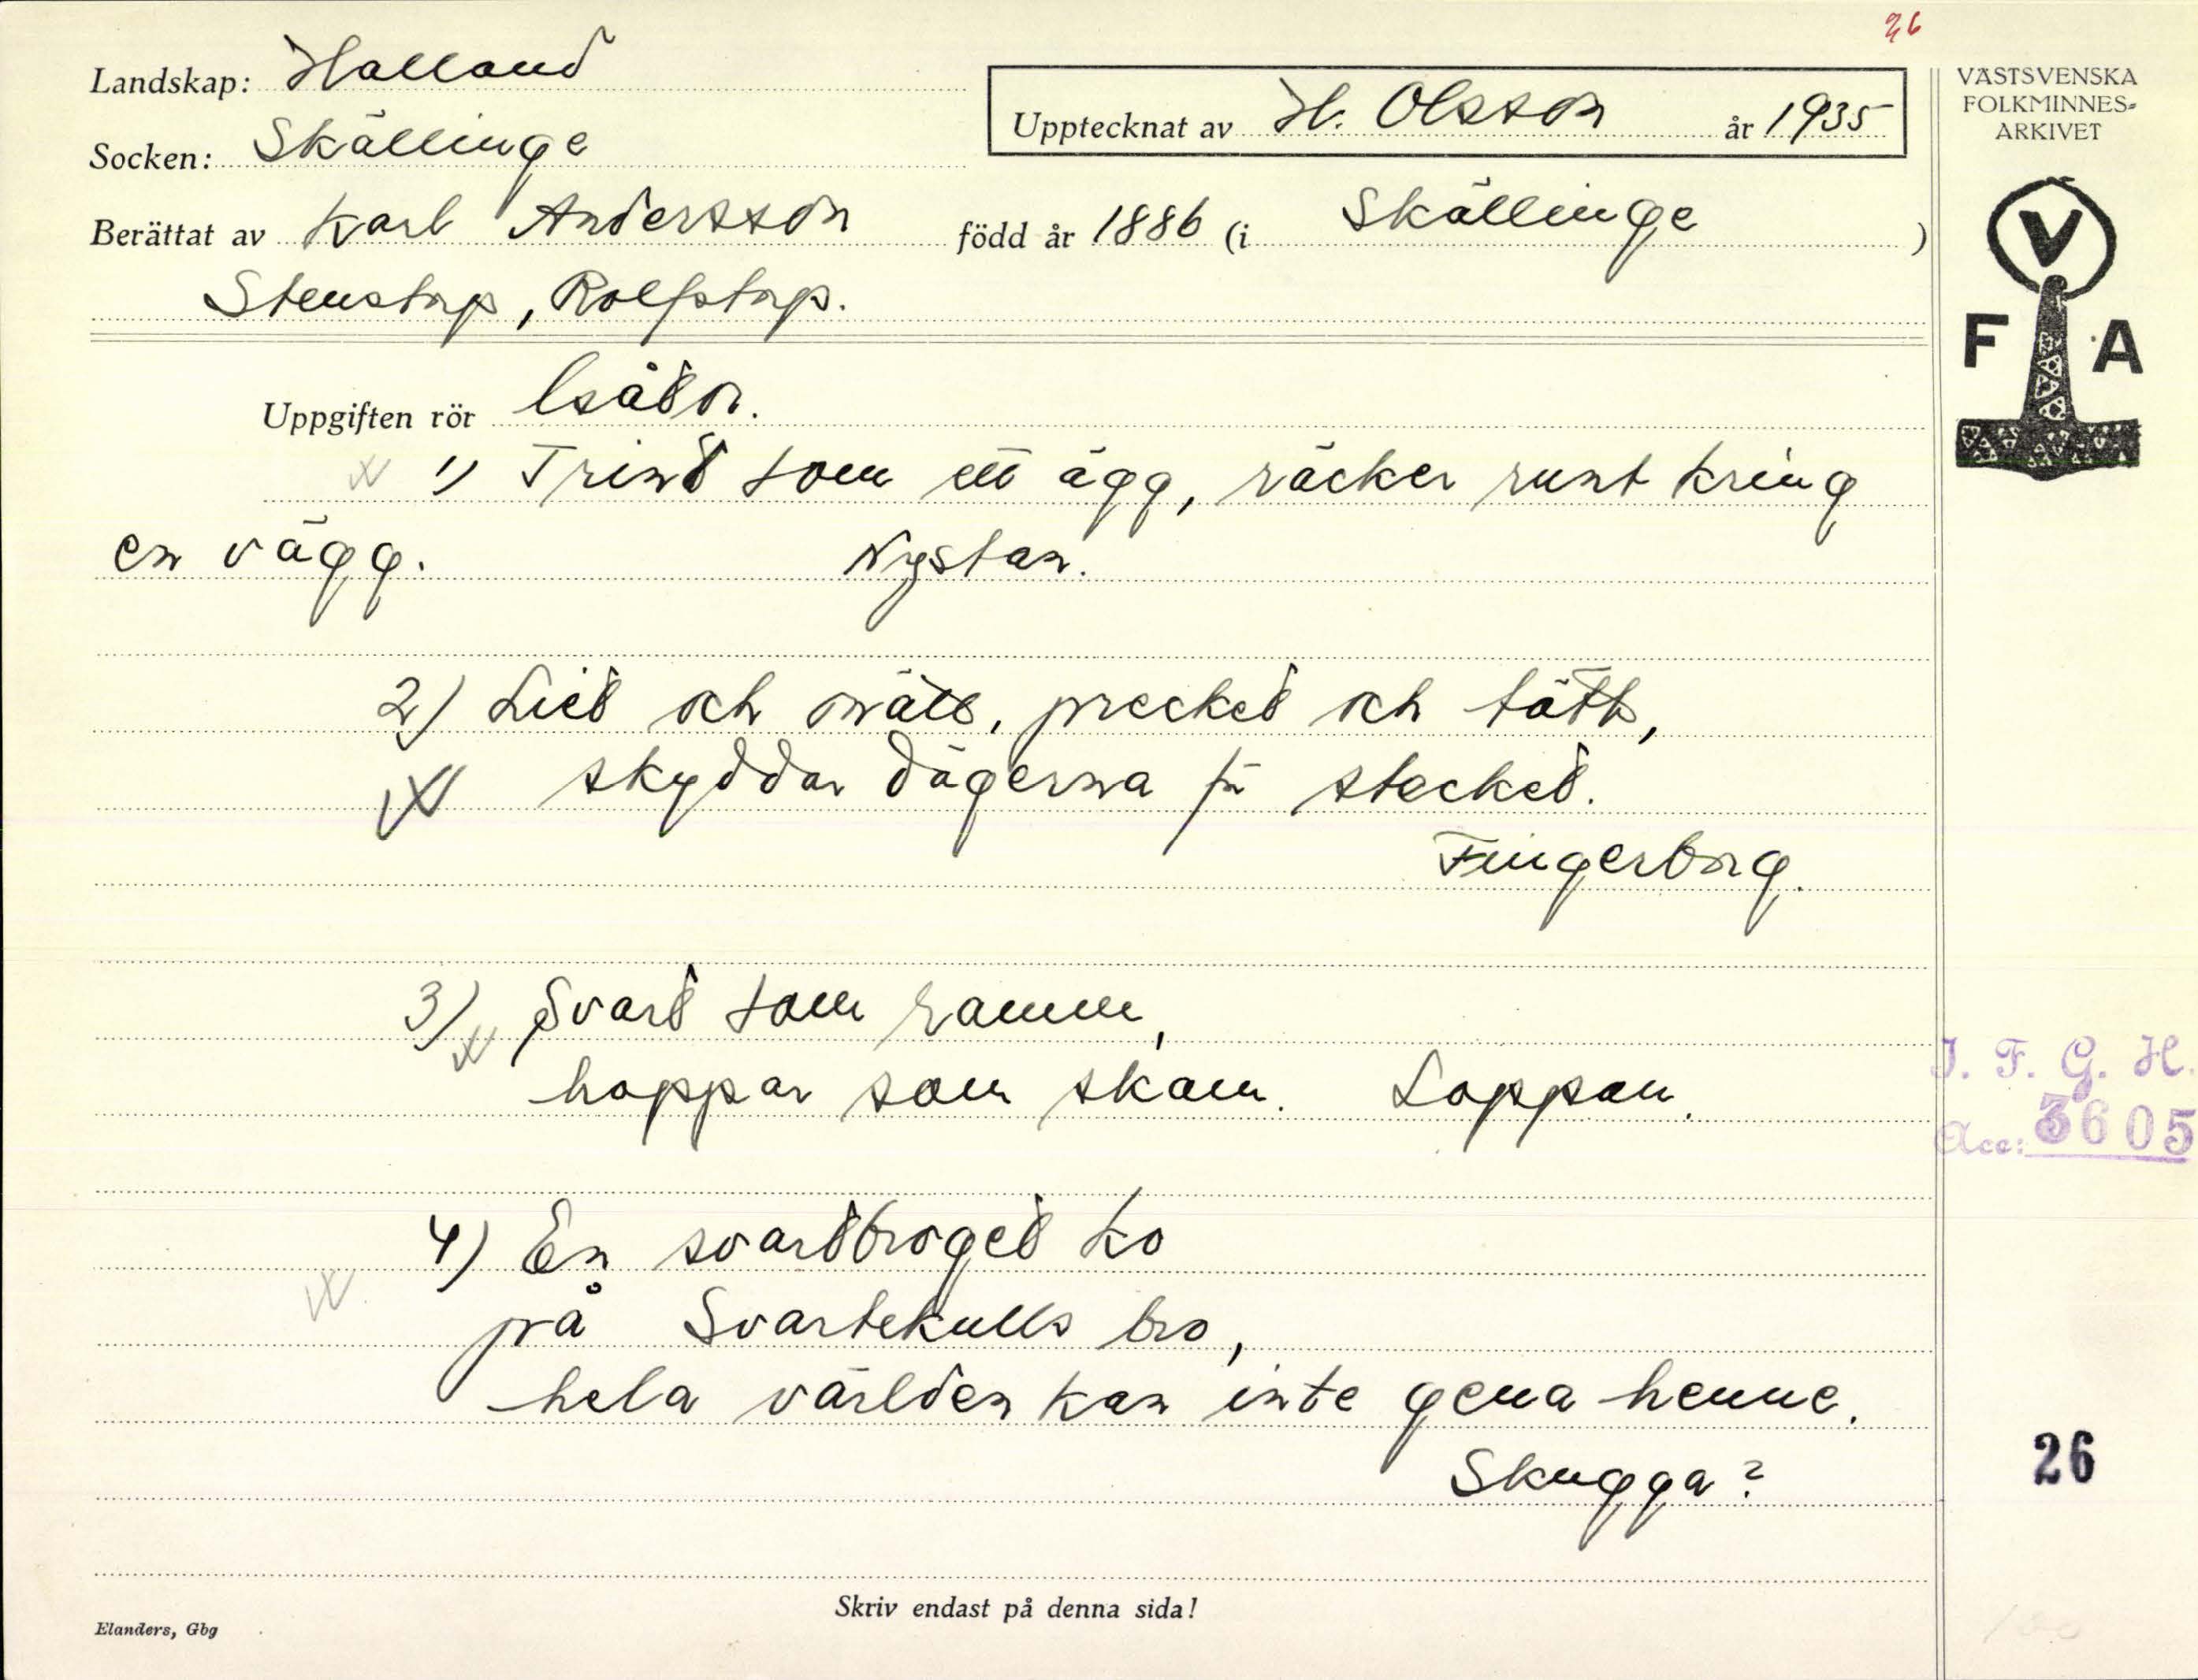 26
Landskap: Halland
Upptecknat av H. Olsson år 1935
VÄSTSVENSKA
FOLKMINNES-
ARKIVET
Socken: Skällinge
Berättat av Karl Andersson född år 1886 (i Skällinge)
Stenstorp, Rolfstorp.
V
F A
Uppgiften rör Gåtor.
1) Trind som ett ägg, räcker runt kring
en vägg. Nystan.
2) Lied och nätt, precked och tätt,
skyddar dägerna för stecked.
Fingerborg.
3) Svard som ramm,
hoppar som skam. Loppan.
I. F. G. H.
Acc: 3605
4) En svardbroged ko
på Svartekulls bro,
hela världen kan inte gena henne.
Skugga?
26
Skriv endast på denna sida!
Elanders, Gbg